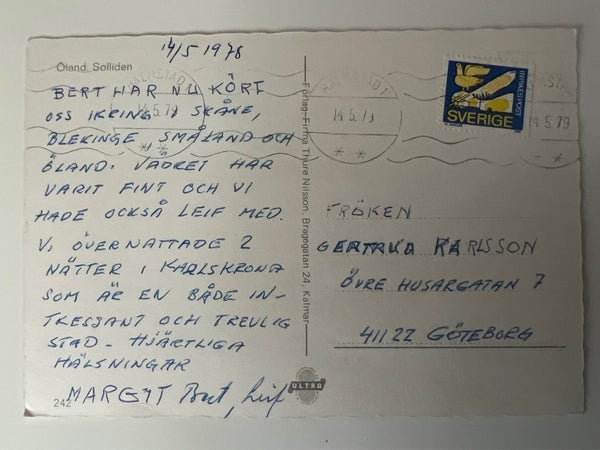 14/5 1978
Öland, Solliden
BERT HAR NU KÖRT
OSS IKRING I SKÅNE,
BLEKINGE SMÅLAND OCH
ÖLAND. VÄDRET HAR
VARIT FINT OCH VI
HADE OCKSÅ LEIF MED.
VI ÖVERNATTADE 2
NÄTTER I KARLSKRONA
SOM ÄR EN BÅDE IN-
TRESSANT OCH TREVLIG
STAD - HJÄRTLIGA
HÄLSNINGAR
MARGIT Bert, Leif
242
Förlag: Firma Thure Nilsson, Bragegatan 24, Kalmar
ULTRA
HALMSTAD 1
14.5.79
14.5.79
14.5.79
INRIKESPOST
SVERIGE
FRÖKEN
GERTRUD KARLSSON
ÖVRE HUSARGATAN 7
411 22 GÖTEBORG